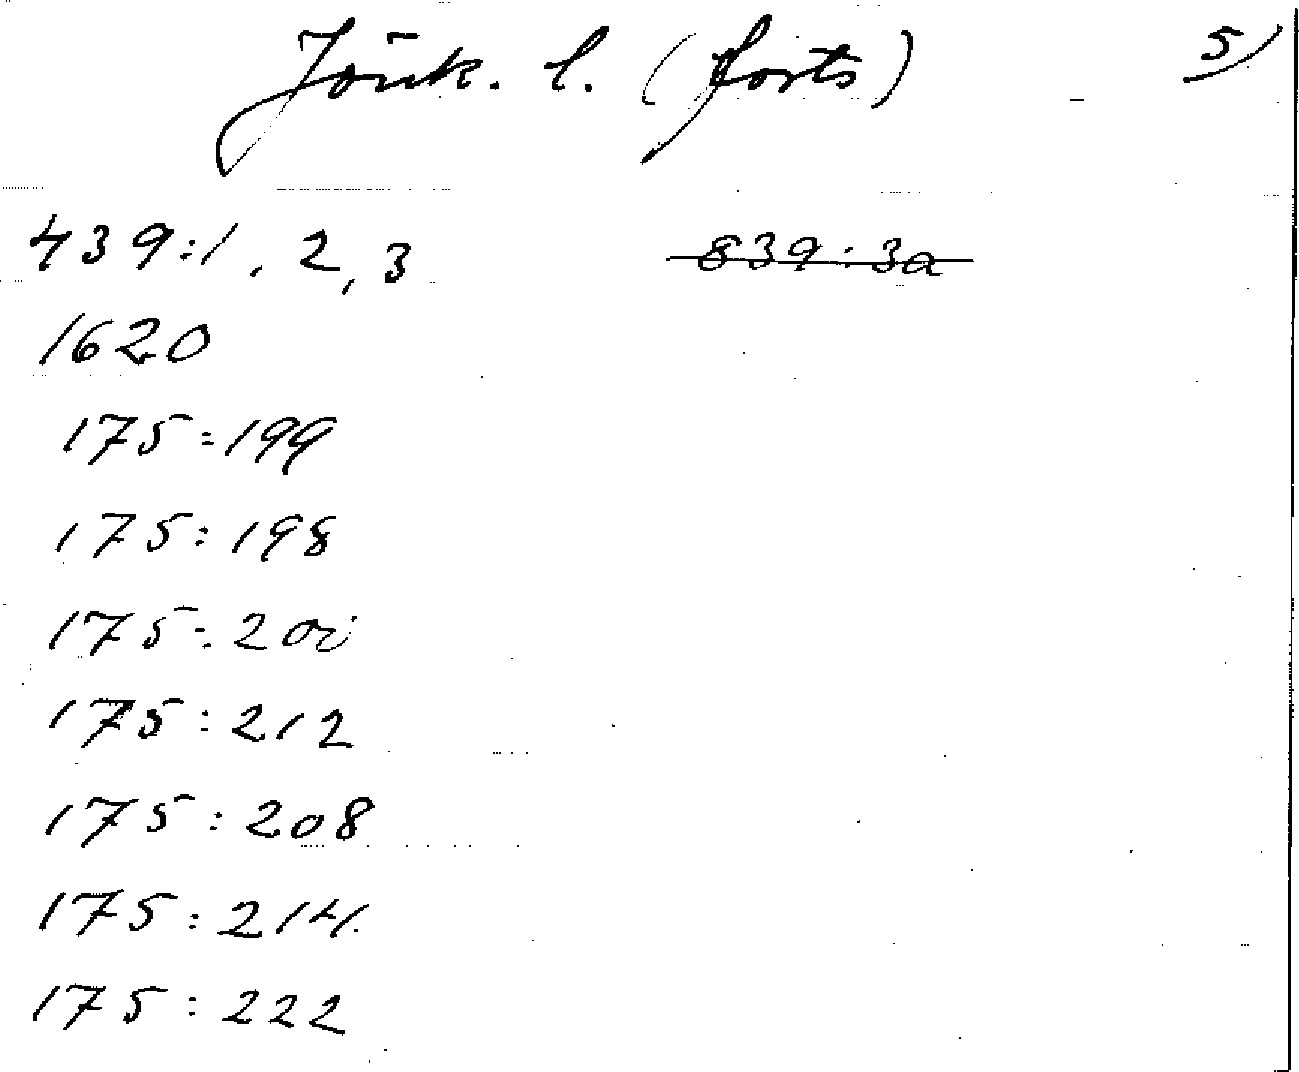 Jönk. l. (forts) 5)
439:1, 2, 3 839:3a
1620
175:199
175:198
175:202
175:212
175:208
175:214
175:222